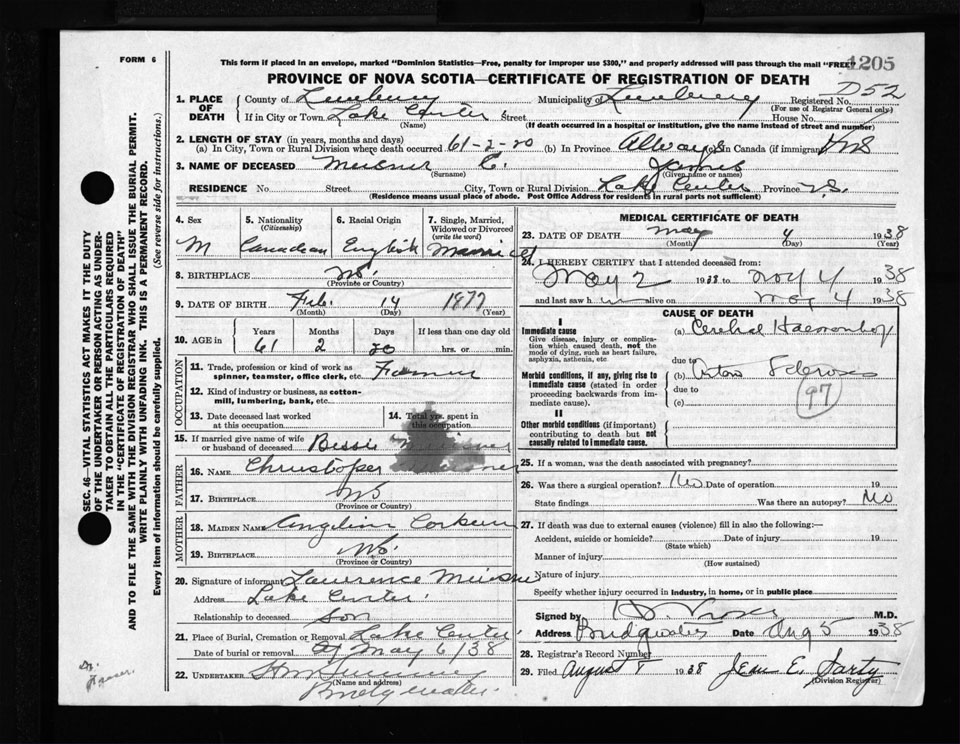 FORM 6
This form if placed in an envelope, marked "Dominion Statistics—Free, penalty for improper use $300," and properly addressed will pass through the mail "FREE"
1205
PROVINCE OF NOVA SCOTIA—CERTIFICATE OF REGISTRATION OF DEATH
D52
1. PLACE OF DEATH County of Lunenburg Municipality of Lunenburg Registered No.
(For use of Registrar General only)
If in City or Town Lake Center Street House No.
(Name) (If death occurred in a hospital or institution, give the name instead of street and number)
2. LENGTH OF STAY (in years, months and days)
(a) In City, Town or Rural Division where death occurred 61-2-20 (b) In Province Always In Canada (if immigrant)
3. NAME OF DECEASED Meisner C. James
(Surname) (Given name or names)
RESIDENCE No. Street City, Town or Rural Division Lake Center Province N.S.
(Residence means usual place of abode. Post Office Address for residents in rural parts not sufficient)
4. Sex 5. Nationality (Citizenship) 6. Racial Origin 7. Single, Married, Widowed or Divorced (write the word)
M Canadian English Married
8. BIRTHPLACE NS.
(Province or Country)
9. DATE OF BIRTH Feb. 14 1877
(Month) (Day) (Year)
10. AGE in Years Months Days If less than one day old
61 2 20 hrs. or min.
OCCUPATION
11. Trade, profession or kind of work as spinner, teamster, office clerk, etc. Farmer
12. Kind of industry or business, as cotton-mill, lumbering, bank, etc.
13. Date deceased last worked at this occupation. 14. Total yrs. spent in this occupation.
15. If married give name of wife or husband of deceased Bessie
FATHER
16. NAME Christoper
17. BIRTHPLACE NS
(Province or Country)
MOTHER
18. MAIDEN NAME Angelina Corkum
19. BIRTHPLACE NS.
(Province or Country)
20. Signature of informant Lawrence Meisner
Address Lake Center
Relationship to deceased Son
21. Place of Burial, Cremation or Removal Lake Center
Date of burial or removal May 6/38
22. UNDERTAKER
(Name and address)
Bridgewater
MEDICAL CERTIFICATE OF DEATH
23. DATE OF DEATH May 4 1938
(Month) (Day) (Year)
24. I HEREBY CERTIFY that I attended deceased from:
May 2 1938 to May 4 1938
and last saw h im alive on May 4 1938
CAUSE OF DEATH
I
Immediate cause (a) Cerebral Haemorrhage
Give disease, injury or complication which caused death, not the mode of dying, such as heart failure, asphyxia, asthenia, etc
due to
Morbid conditions, if any, giving rise to immediate cause (stated in order proceeding backwards from immediate cause).
(b) Arterio Sclerosis
due to
97
(c)
II
Other morbid conditions (if important) contributing to death but not causally related to immediate cause.
25. If a woman, was the death associated with pregnancy?
26. Was there a surgical operation? No Date of operation 19
State findings Was there an autopsy? No
27. If death was due to external causes (violence) fill in also the following:—
Accident, suicide or homicide? Date of injury 19
(State which)
Manner of injury
(How sustained)
Nature of injury
Specify whether injury occurred in industry, in home, or in public place
Signed by M.D.
Address Bridgewater Date Aug 5 1938
28. Registrar's Record Number
29. Filed August 1938 Jean E. Sarty
(Division Registrar)
SEC. 46—VITAL STATISTICS ACT MAKES IT THE DUTY
OF THE UNDERTAKER OR PERSON ACTING AS UNDER-
TAKER TO OBTAIN ALL THE PARTICULARS REQUIRED
IN THE "CERTIFICATE OF REGISTRATION OF DEATH"
AND TO FILE THE SAME WITH THE DIVISION REGISTRAR WHO SHALL ISSUE THE BURIAL PERMIT.
WRITE PLAINLY WITH UNFADING INK. THIS IS A PERMANENT RECORD.
Every item of Information should be carefully supplied. (See reverse side for instructions.)
Dr.